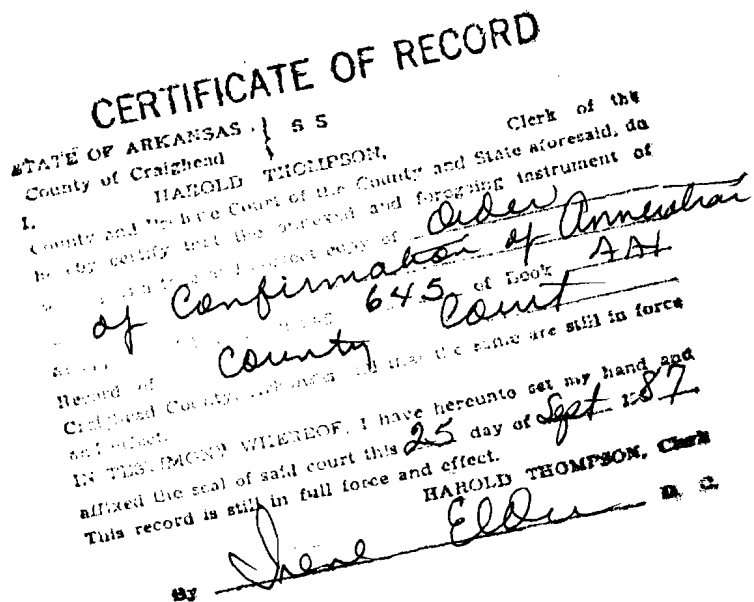 CERTIFICATE OF RECORD
STATE OF ARKANSAS } SS
County of Craighead }
I, HAROLD THOMPSON, Clerk of the
County and Court of the County and State aforesaid, do
hereby certify that the annexed and foregoing instrument of
correct copy of Order
of Confirmation of Annexation
645 of Book AAI
Record of County Court
Craighead County, Arkansas and that the same are still in force
and effect.
IN TESTIMONY WHEREOF, I have hereunto set my hand and
affixed the seal of said court this 25 day of Sept. 1987.
This record is still in full force and effect.
HAROLD THOMPSON, Clerk
By Irene Elder D. C.